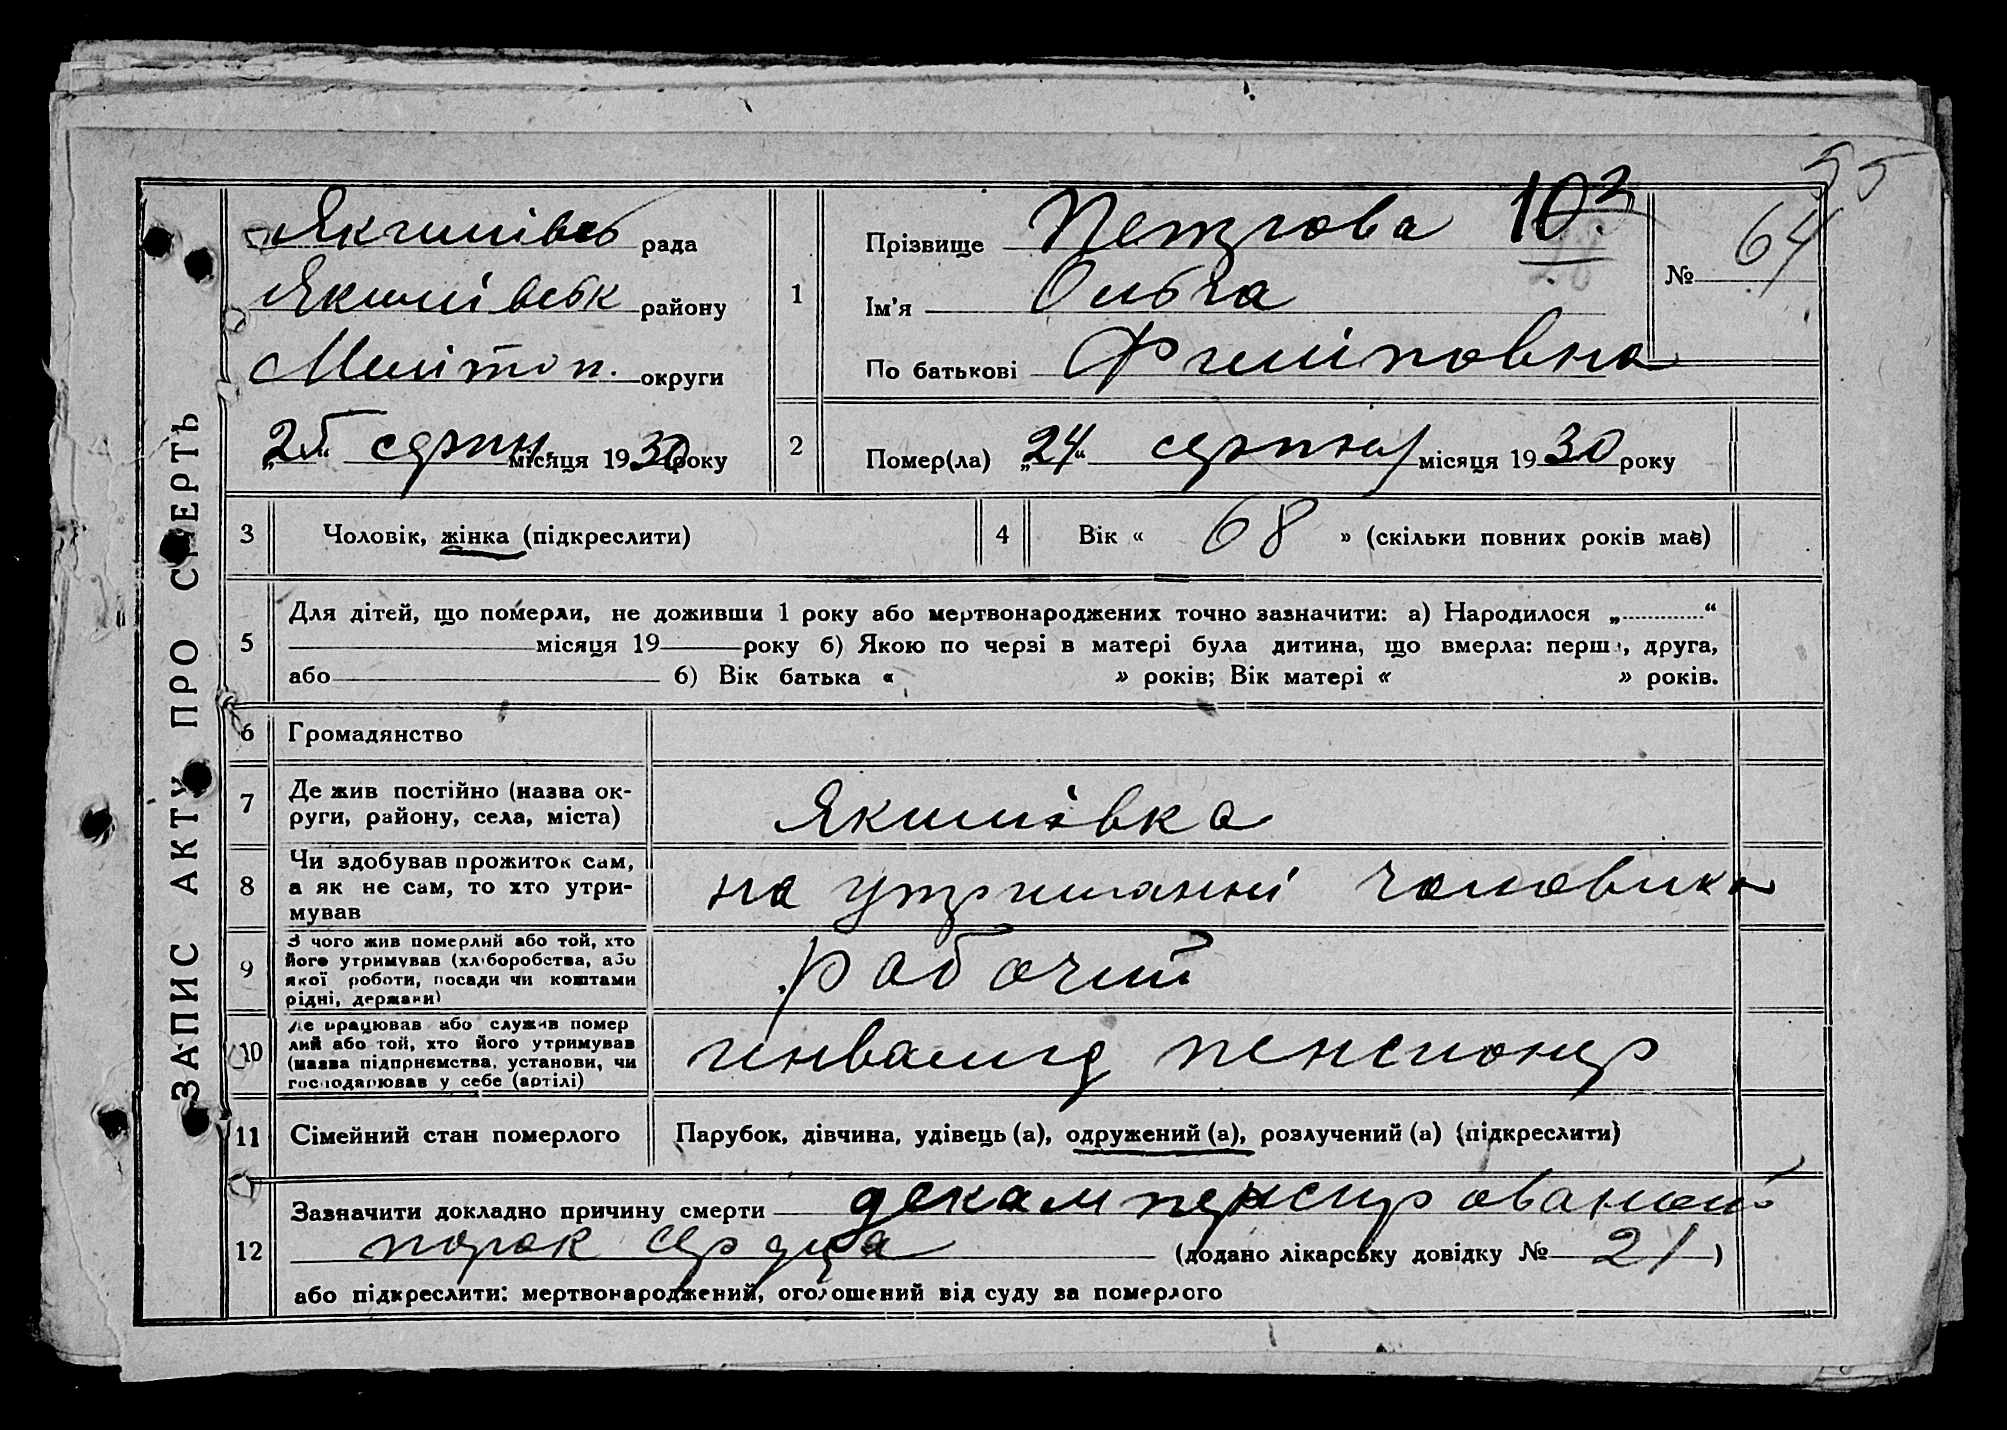 55
ЗАПИС АКТУ ПРО СМЕРТЬ
Якимівсь рада
Якимівськ району
Мелітоп. округи
„25“ серпн. місяця 1930 року
1
Прізвище Петрова
Ім'я Ольга
По батькові Филіповна
№ 64
2
Помер(ла) „24“ серпня місяця 1930 року
3 Чоловік, жінка (підкреслити)
4 Вік « 68 » (скільки повних років має)
5
Для дітей, що померли, не доживши 1 року або мертвонароджених точно зазначити: а) Народилося „ “
місяця 19 року б) Якою по черзі в матері була дитина, що вмерла: перша, друга,
або б) Вік батька « » років; Вік матері « » років.
6 Громадянство
7 Де жив постійно (назва ок-
руги, району, села, міста)
Якимівка
8 Чи здобував прожиток сам,
а як не сам, то хто утри-
мував
на утриманні чоловика
9 З чого жив померлий або той, хто
його утримував (хліборобства, або
якої роботи, посади чи коштами
рідні, держави)
рабочий
10 Де працював або служив помер
лий або той, хто його утримував
(назва підприємства, установи, чи
господарював у себе (артілі)
инвалид пенсионер
11 Сімейний стан померлого Парубок, дівчина, удівець (а), одружений (а), розлучений (а) (підкреслити)
12 Зазначити докладно причину смерти декампенсированый
порок сердца (додано лікарську довідку № 21)
або підкреслити: мертвонароджений, оголошений від суду за померлого